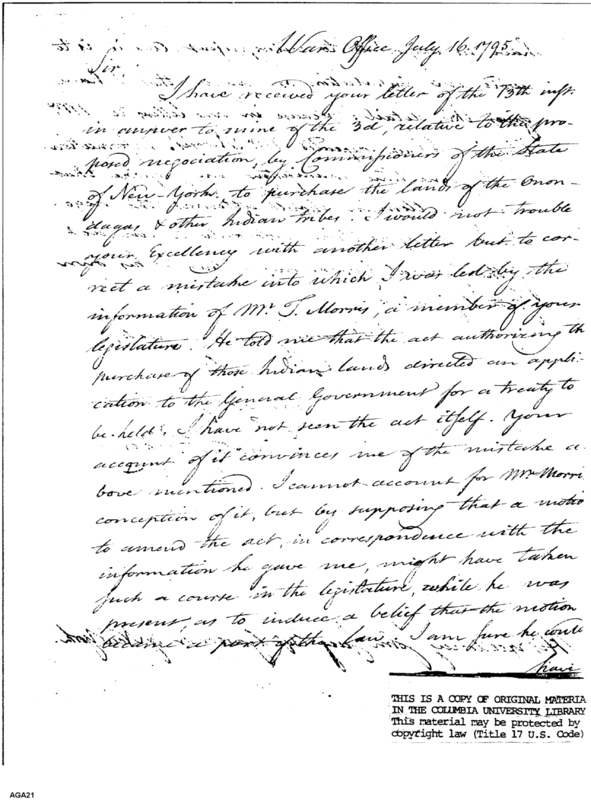 War Office July 16. 1795
Sir,
I have received your letter of the 13th inst.
in answer to mine of the 3d, relative to the pro-
posed negociation, by Commissioners of the State
of New-York to purchase the lands of the Onon-
dagas & other Indian tribes. I would not trouble
your Excellency with another letter but to cor-
rect a mistake into which I was led by the
information of Mr. T. Morris, a member of your
legislature. He told me that the act authorizing th
purchase of those Indian lands directed an appli-
cation to the General Government for a treaty to
be held. I have not seen the act itself. Your
account of it convinces me of the mistake a-
bove mentioned. I cannot account for Mr. Morri
conception of it, but by supposing that a motio
to amend the act, in correspondence with the
information he gave me, might have taken
such a course in the legislature, while he was
present, as to induce a belief that the motion
became a part of the law. I am sure he could
have
THIS IS A COPY OF ORIGINAL MATERIA
IN THE COLUMBIA UNIVERSITY LIBRARY
This material may be protected by
copyright law (Title 17 U.S. Code)
AGA21